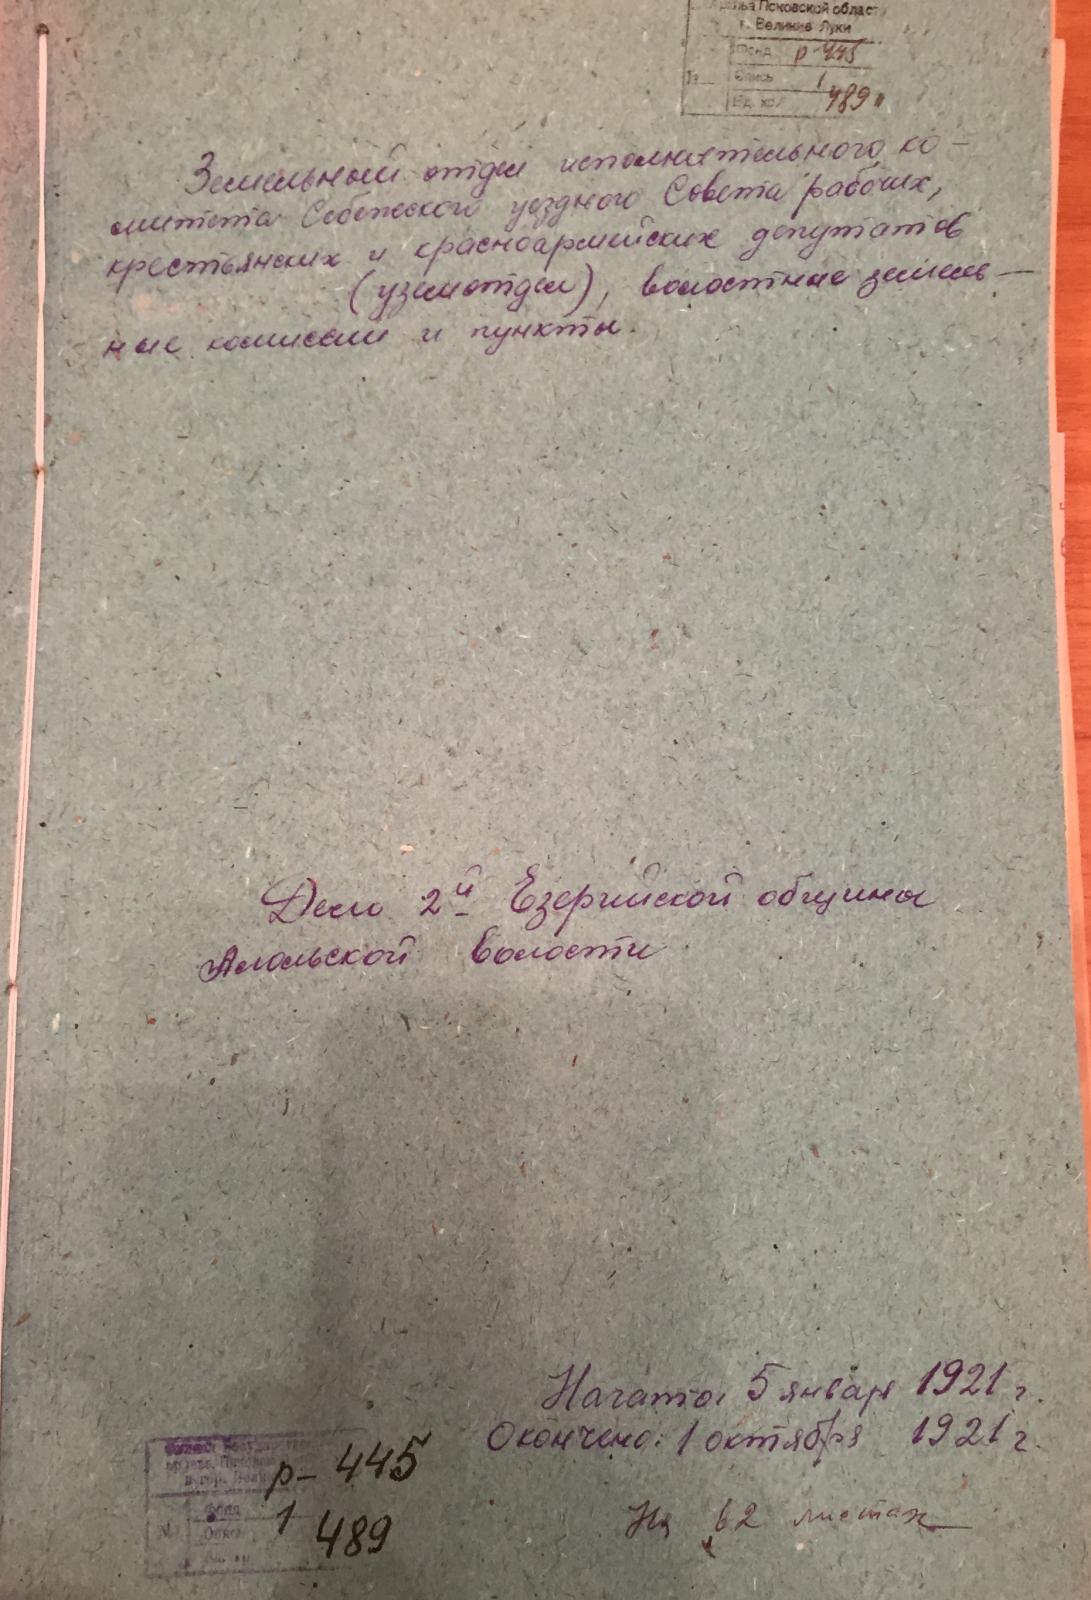 Псковской област
г. Великие Луки
Фонд р-445
Опись 1
Ед. хр. 489
Земельный отдел исполнительного ко-
митета Себежского уездного Совета рабочих,
крестьянских и красноармейских депутатов
(уземотдел), волостные земель-
ные комиссии и пункты.
Дело 2й Езерийской общины
Алольской волости
Начато: 5 января 1921 г.
Окончено: 1 октября 1921 г.
На 62 листах
р-445
Фонд
№ Опись 1
489